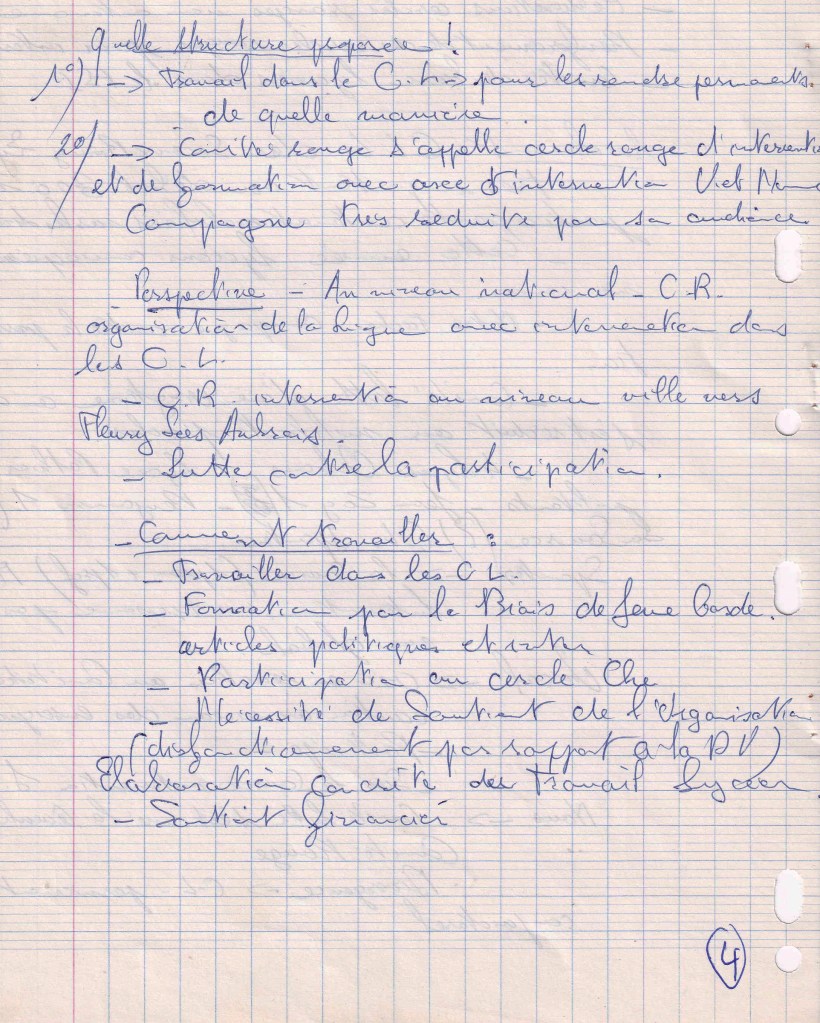 Quelle structure proposée !
1º) -> Travail dans le C.L -> pour les rendre permanents.
de quelle manière.
2º/ -> Comité rouge s'appelle cercle rouge d'interventi
et de formation avec axe d'intervention Viet Nam
Campagne très réduite par son audience
- Perspective - Au niveau national - C.R.
organisation de la Ligue avec intervention dans
les C.L.
- C.R. intervention au niveau ville vers
Fleury Les Aubrais.
- Lutte contre la participation.
- Comment travailler :
- Travailler dans les C L.
- Formation par le Biais de Jeune Garde.
articles politiques et
- Participation au cercle Che
- Nécessité de Soutient de l'Organisation
(disfonctionnement par rapport à la DV)
Elaboration concrète des Travail Lycéen.
- Soutient financier
4